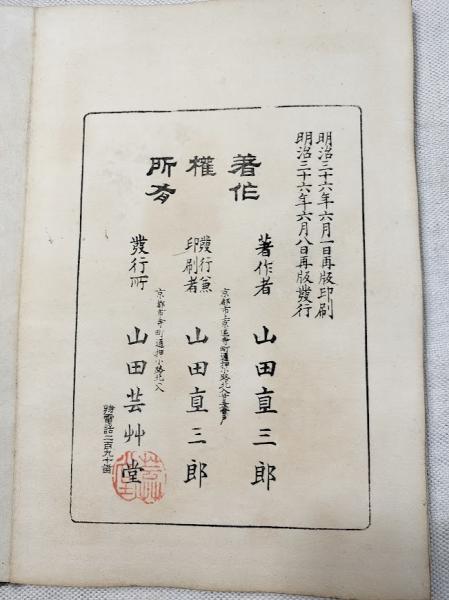 明治三十六年六月一日再版印刷
明治三十六年六月八日再版發行
著作
權
所有
著作者 山田直三郎
京都市上京區寺町通押小路北入
發行兼
印刷者 山田直三郎
京都市寺町通押小路北入
發行所 山田芸艸堂
特電話二百九十番
芸艸堂